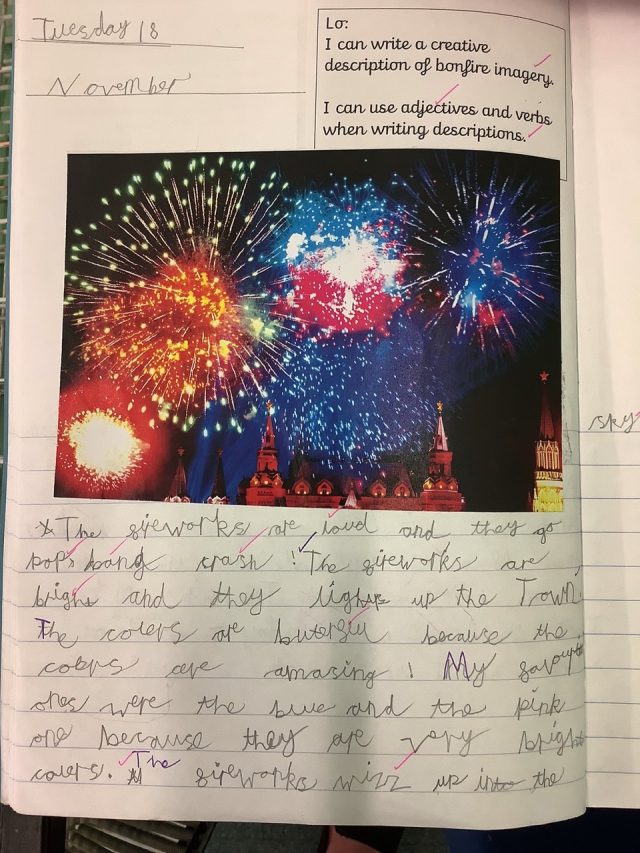 Tuesday 18
November
Lo:
I can write a creative
description of bonfire imagery.
I can use adjectives and verbs
when writing descriptions.
sky
*The fireworks are loud and they go
pops bang crash ! The fireworks are
bright and they lights up the Town.
The colers are buterful because the
colers are amasing ! My favourite
ones were the blue and the pink
one because they are very bright
colers. The fireworks wizz up into the